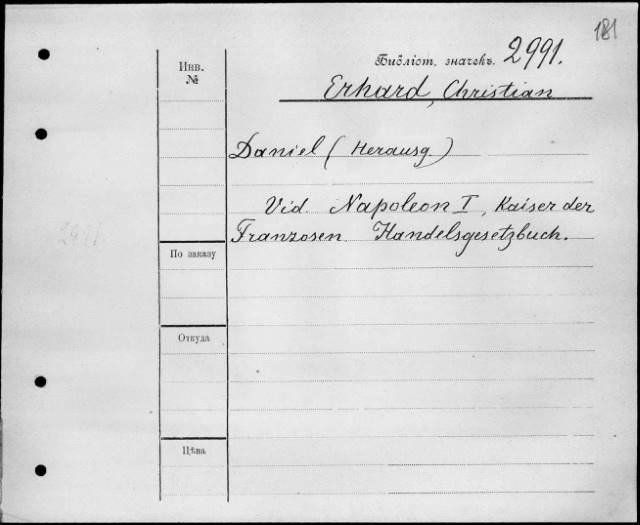 181
Инв.
№
Библіот. значекъ. 2991.
Erhard, Christian
Daniel (Herausg.)
Vid. Napoleon I, Kaiser der
Franzosen. Handelsgesetzbuch.
2991.
По заказу
Откуда
Цѣна